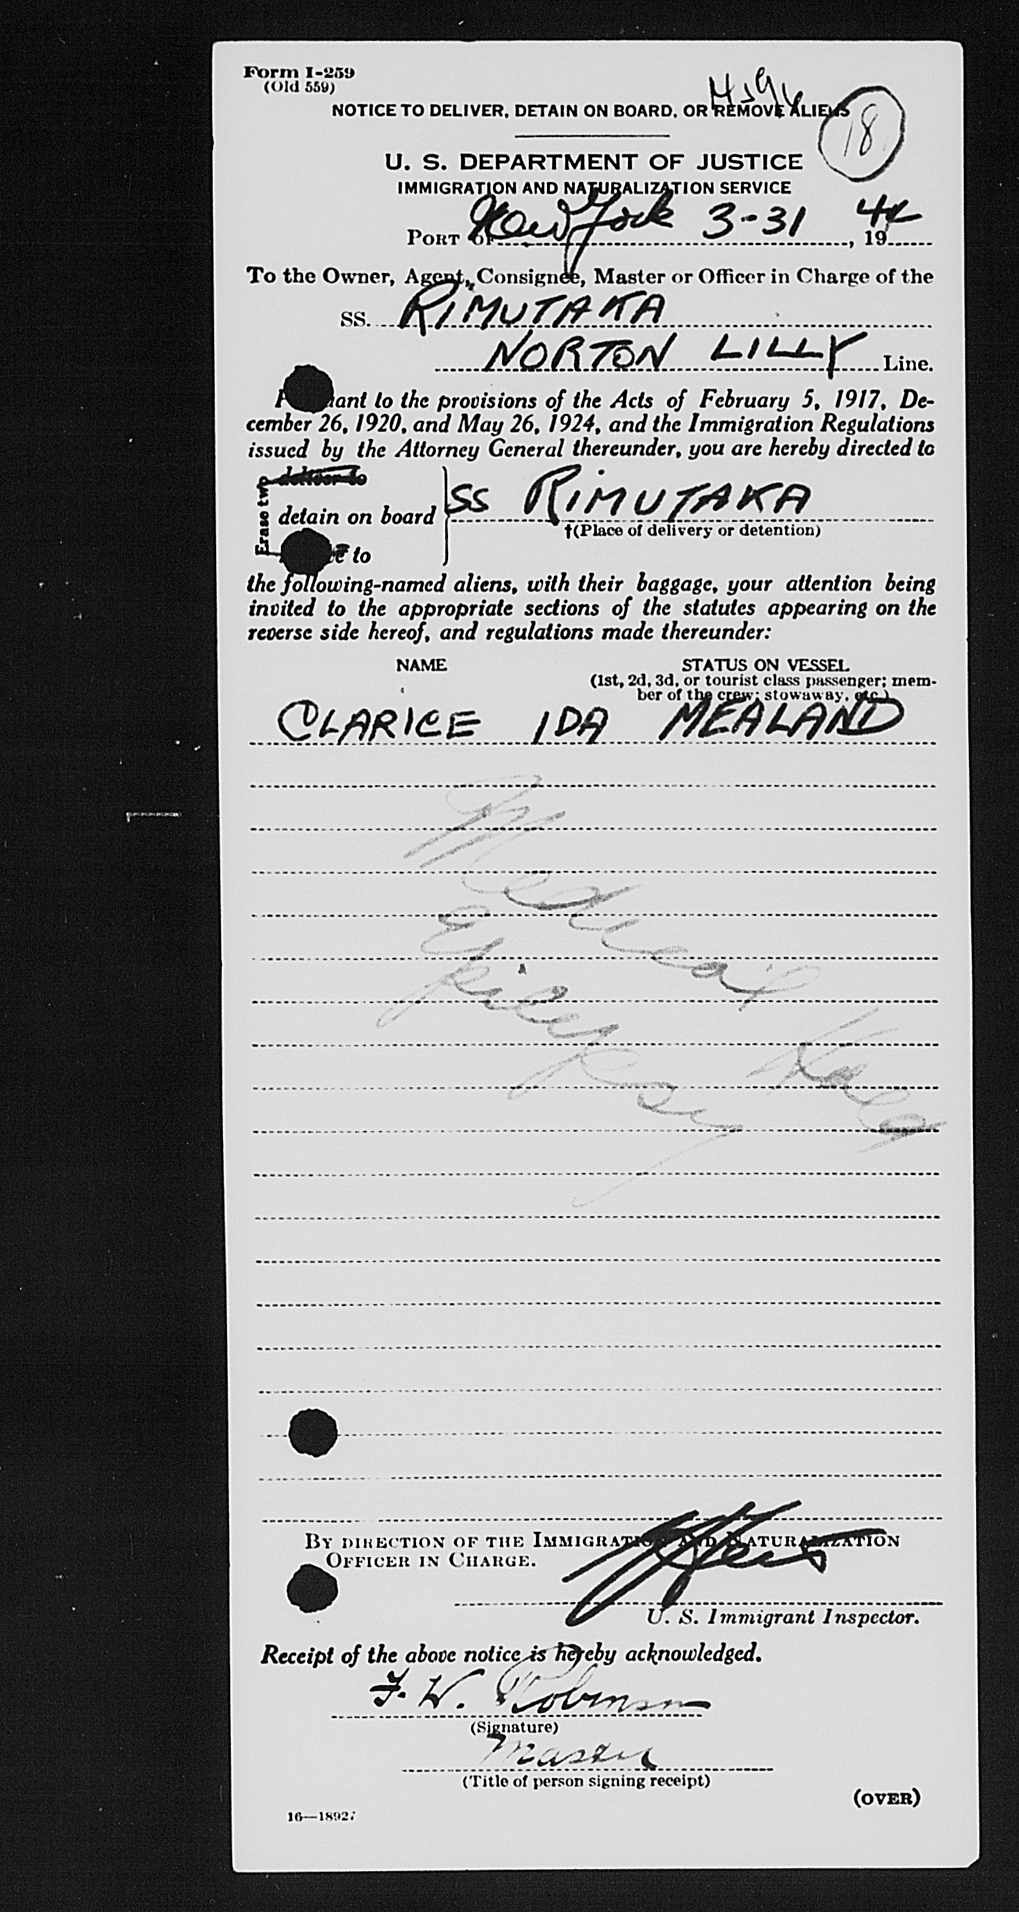 Form I-259
(Old 559)
NOTICE TO DELIVER, DETAIN ON BOARD, OR REMOVE ALIENS
18
U. S. DEPARTMENT OF JUSTICE
IMMIGRATION AND NATURALIZATION SERVICE
PORT OF New York 3-31, 1944
To the Owner, Agent, Consignee, Master or Officer in Charge of the
SS. RIMUTAKA
NORTON LILLY Line.
Pursuant to the provisions of the Acts of February 5, 1917, De-
cember 26, 1920, and May 26, 1924, and the Immigration Regulations
issued by the Attorney General thereunder, you are hereby directed to
Erase two
deliver to
detain on board
to
SS RIMUTAKA
†(Place of delivery or detention)
the following-named aliens, with their baggage, your attention being
invited to the appropriate sections of the statutes appearing on the
reverse side hereof, and regulations made thereunder:
NAME STATUS ON VESSEL
(1st, 2d, 3d, or tourist class passenger; mem-
ber of the crew; stowaway, etc.)
CLARICE IDA MEALAND
Medical Hold
Epilepsy
BY DIRECTION OF THE IMMIGRATION AND NATURALIZATION
OFFICER IN CHARGE.
U. S. Immigrant Inspector.
Receipt of the above notice is hereby acknowledged.
F. W. Robinson
(Signature)
Master
(Title of person signing receipt)
(OVER)
16—18927